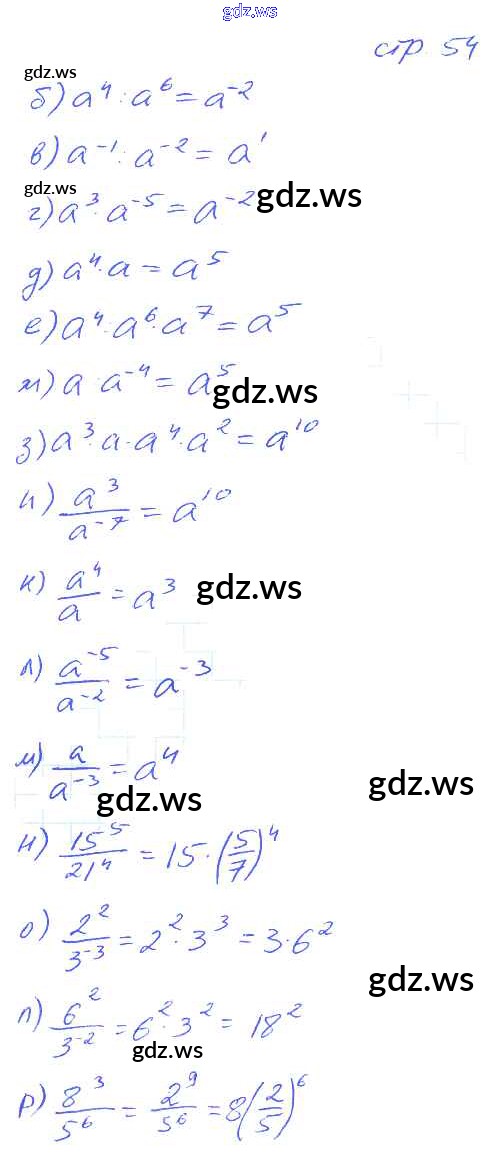 gdz.ws
стр. 54
gdz.ws
б) a⁴ : a⁶ = a⁻²
в) a⁻¹ : a⁻² = a¹
gdz.ws
г) a³ · a⁻⁵ = a⁻²
gdz.ws
д) a⁴ · a = a⁵
е) a⁴ · a⁶ · a⁷ = a⁵
ж) a · a⁻⁴ = a⁵
gdz.ws
з) a³ · a · a⁴ · a² = a¹⁰
и) a³/a⁻⁷ = a¹⁰
к) a⁴/a = a³
gdz.ws
л) a⁻⁵/a⁻² = a⁻³
м) a/a⁻³ = a⁴
gdz.ws
gdz.ws
н) 15⁵/21⁴ = 15 · (5/7)⁴
о) 2²/3⁻³ = 2² · 3³ = 3 · 6²
gdz.ws
п) 6²/3⁻² = 6² · 3² = 18²
gdz.ws
р) 8³/5⁶ = 2⁹/5⁶ = 8(2/5)⁶